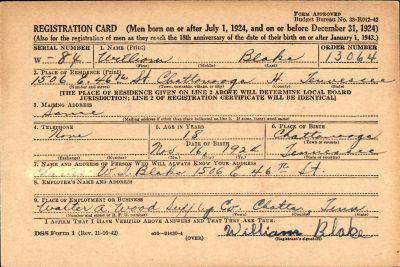 FORM APPROVED
Budget Bureau No. 33-R012-42
REGISTRATION CARD (Men born on or after July 1, 1924, and on or before December 31, 1924)
(Also for the registration of men as they reach the 18th anniversary of the date of their birth on or after January 1, 1943.)
SERIAL NUMBER 1. NAME (Print) ORDER NUMBER
W-84 William Blake 13064
2. PLACE OF RESIDENCE (Print)
1506 E. 46th St. Chattanooga H. Tennessee
(Number and street) (Town, township, village, or city) (County) (State)
[THE PLACE OF RESIDENCE GIVEN ON LINE 2 ABOVE WILL DETERMINE LOCAL BOARD
JURISDICTION; LINE 2 OF REGISTRATION CERTIFICATE WILL BE IDENTICAL]
3. MAILING ADDRESS
Same
[Mailing address if other than place indicated on line 2. If same, insert word same]
4. TELEPHONE 5. AGE IN YEARS 6. PLACE OF BIRTH
None 18 Chattanooga
DATE OF BIRTH (Town or county)
Nov 16, 1924 Tennessee
(Exchange) (Number) (Mo.) (Day) (Yr.) (State or country)
7. NAME AND ADDRESS OF PERSON WHO WILL ALWAYS KNOW YOUR ADDRESS
W. J. Blake 1506 E 46th St.
8. EMPLOYER'S NAME AND ADDRESS
9. PLACE OF EMPLOYMENT OR BUSINESS
Walter A. Wood Supply Co. Chatta, Tenn.
(Number and street or R. F. D. number) (Town) (County) (State)
I AFFIRM THAT I HAVE VERIFIED ABOVE ANSWERS AND THAT THEY ARE TRUE.
DSS Form 1 (Rev. 11-16-42) (OVER) William Blake
(Registrant's signature)